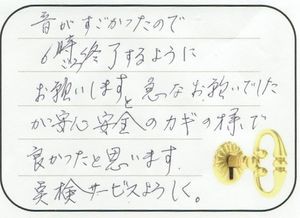 音がすごかったので
6時に終了するように
お願いしますと急なお願いでした
が安心安全のカギの様で
良かったと思います
点検サービスよろしく。